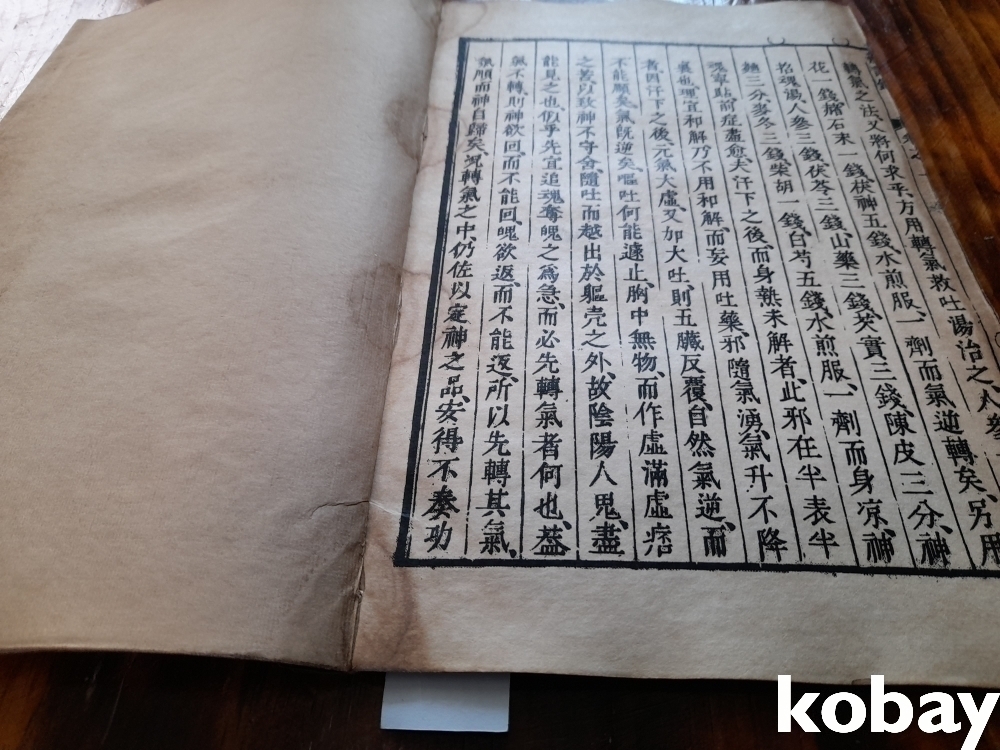 轉氣之法、又將何求乎、方用轉氣救吐湯治之、人參
花一錢、赭石末一錢、茯神五錢、水煎服、一劑而氣逆轉矣、另用
招魂湯、人參三錢、茯苓三錢、山藥三錢、芡實三錢、陳皮三分、神
麯三分、麥冬三錢、柴胡一錢、白芍五錢、水煎服、一劑而身凉、神
魂寧貼、前症盡愈、夫汗下之後、而身熱未解者、此邪在半表半
裏也、理宜和解、乃不用和解、而妄用吐藥、邪隨氣湧、氣升不降
者、因汗下之後、元氣大虛、又加大吐、則五臟反覆、自然氣逆、而
不能順矣、氣既逆矣、嘔吐何能遽止、胸中無物、而作虛滿虛痞
之象、以致神不守舍、隨吐而越出於軀壳之外、故陰陽人鬼、盡
能見之也、似乎先宜追魂奪魄之爲急、而必先轉氣者何也、蓋
氣不轉則神欲回、而不能回、魄欲返、而不能返、所以先轉其氣、
氣順而神自歸矣、況轉氣之中、仍佐以定神之品、安得不奏功
kobay